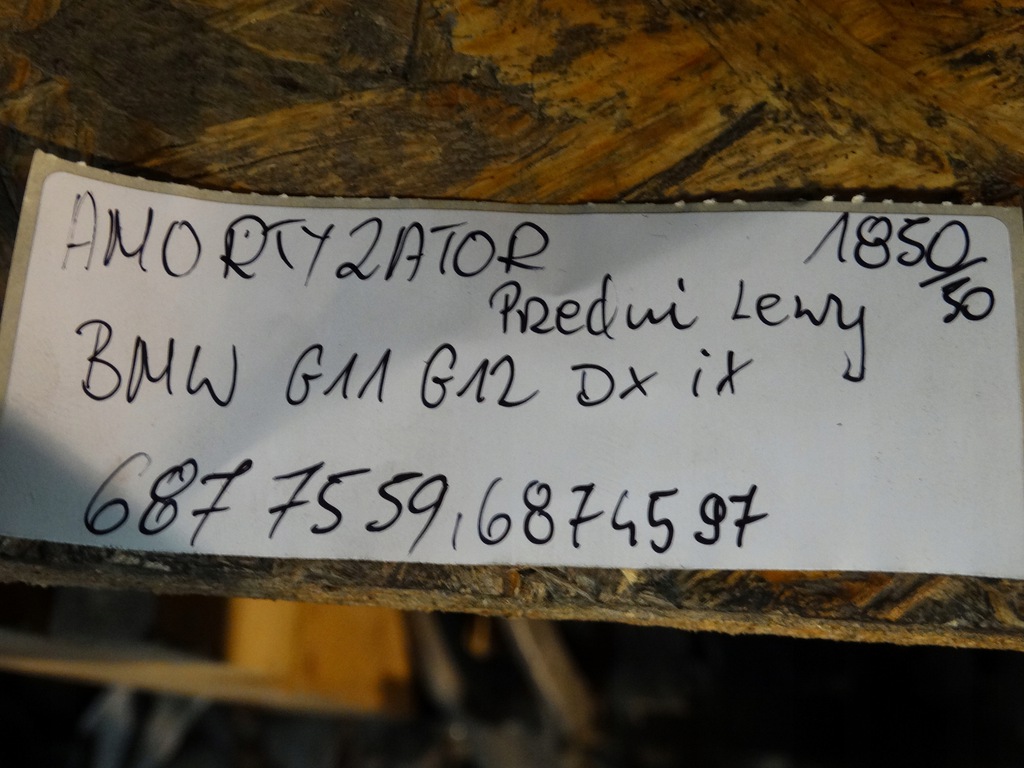 AMORTYZATOR 1850/50
Przedni Lewy
BMW G11 G12 DX iX
687 7559, 6874597